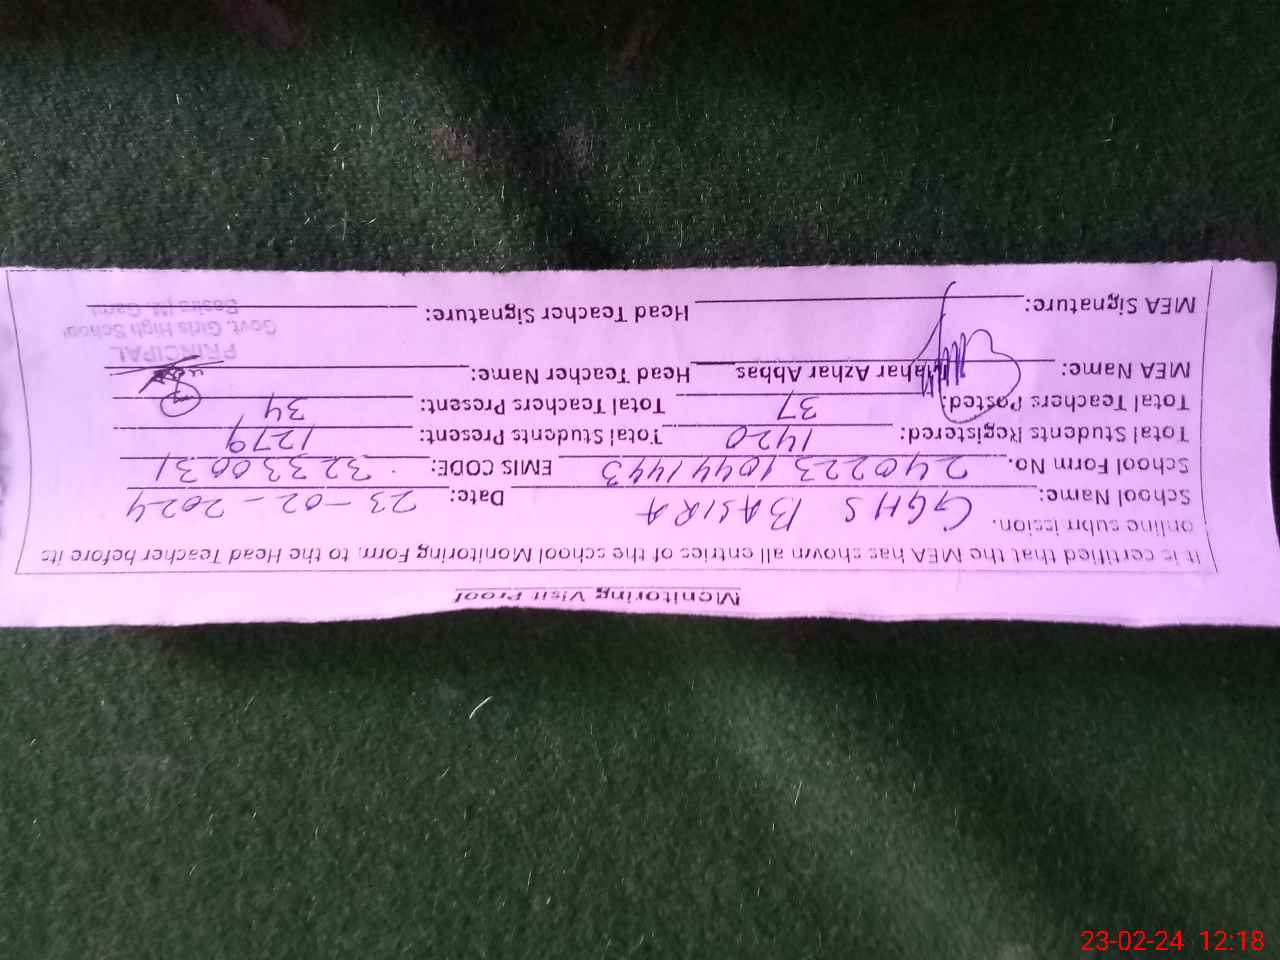 Monitoring Visit Proof
It is certified that the MEA has shown all entries of the school Monitoring Form, to the Head Teacher before its
online submission.
School Name: GGHS BASIRA Date: 23-02-2024
School Form No. 24022310441443 EMIS CODE: 32330031
Total Students Registered: 1420 Total Students Present: 1279
Total Teachers Posted: 37 Total Teachers Present: 34
MEA Name: Mahar Azhar Abbas Head Teacher Name:
MEA Signature: Head Teacher Signature:
PRINCIPAL
Govt. Girls High School
Basira
23-02-24 12:18